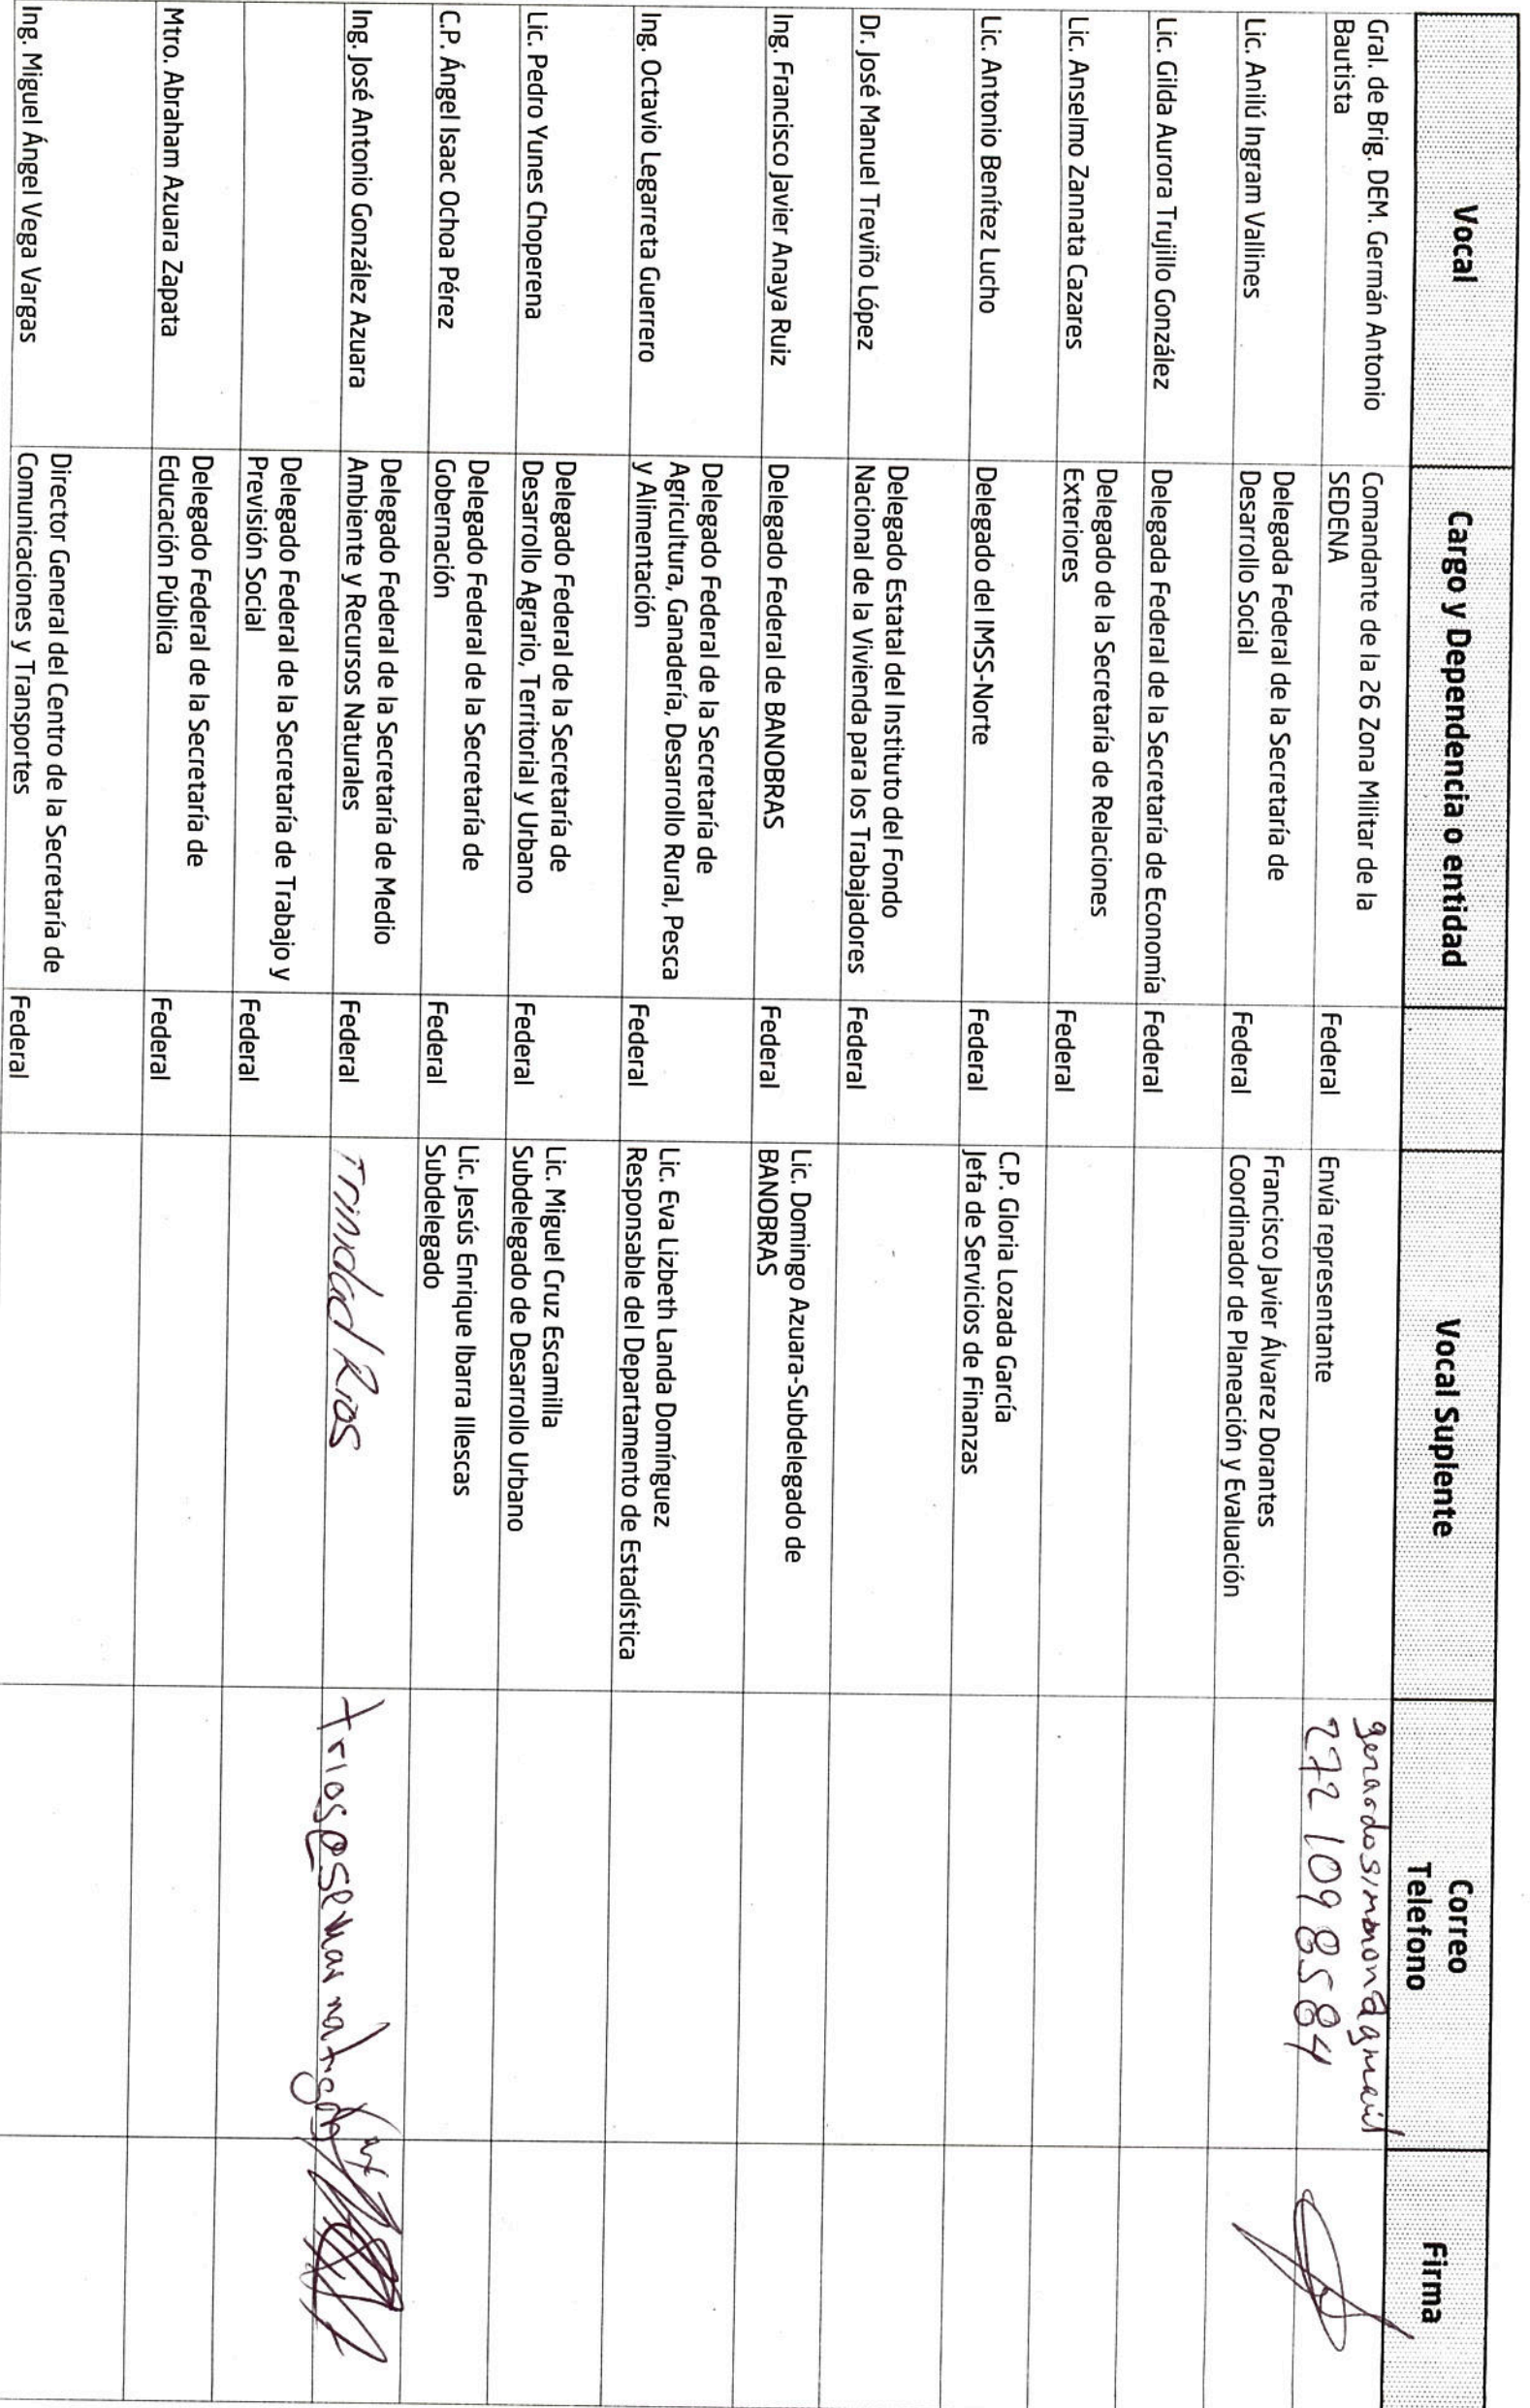 Vocal
Cargo y Dependencia o entidad
Vocal Suplente
Correo
Telefono
Firma
Gral. de Brig. DEM. Germán Antonio
Bautista
Comandante de la 26 Zona Militar de la
SEDENA
Federal
Envía representante
272 109 8584
Lic. Anilú Ingram Vallines
Delegada Federal de la Secretaría de
Desarrollo Social
Federal
Francisco Javier Álvarez Dorantes
Coordinador de Planeación y Evaluación
Lic. Gilda Aurora Trujillo González
Delegada Federal de la Secretaría de Economía
Federal
Lic. Anselmo Zannata Cazares
Delegado de la Secretaría de Relaciones
Exteriores
Federal
Lic. Antonio Benítez Lucho
Delegado del IMSS-Norte
Federal
C.P. Gloria Lozada García
Jefa de Servicios de Finanzas
Dr. José Manuel Treviño López
Delegado Estatal del Instituto del Fondo
Nacional de la Vivienda para los Trabajadores
Federal
Ing. Francisco Javier Anaya Ruiz
Delegado Federal de BANOBRAS
Federal
Lic. Domingo Azuara-Subdelegado de
BANOBRAS
Ing. Octavio Legarreta Guerrero
Delegado Federal de la Secretaría de
Agricultura, Ganadería, Desarrollo Rural, Pesca
y Alimentación
Federal
Lic. Eva Lizbeth Landa Domínguez
Responsable del Departamento de Estadística
Lic. Pedro Yunes Choperena
Delegado Federal de la Secretaría de
Desarrollo Agrario, Territorial y Urbano
Federal
Lic. Miguel Cruz Escamilla
Subdelegado de Desarrollo Urbano
C.P. Ángel Isaac Ochoa Pérez
Delegado Federal de la Secretaría de
Gobernación
Federal
Lic. Jesús Enrique Ibarra Illescas
Subdelegado
Ing. José Antonio González Azuara
Delegado Federal de la Secretaría de Medio
Ambiente y Recursos Naturales
Federal
Trinidad Rios
Delegado Federal de la Secretaría de Trabajo y
Previsión Social
Federal
Mtro. Abraham Azuara Zapata
Delegado Federal de la Secretaría de
Educación Pública
Federal
Ing. Miguel Ángel Vega Vargas
Director General del Centro de la Secretaría de
Comunicaciones y Transportes
Federal